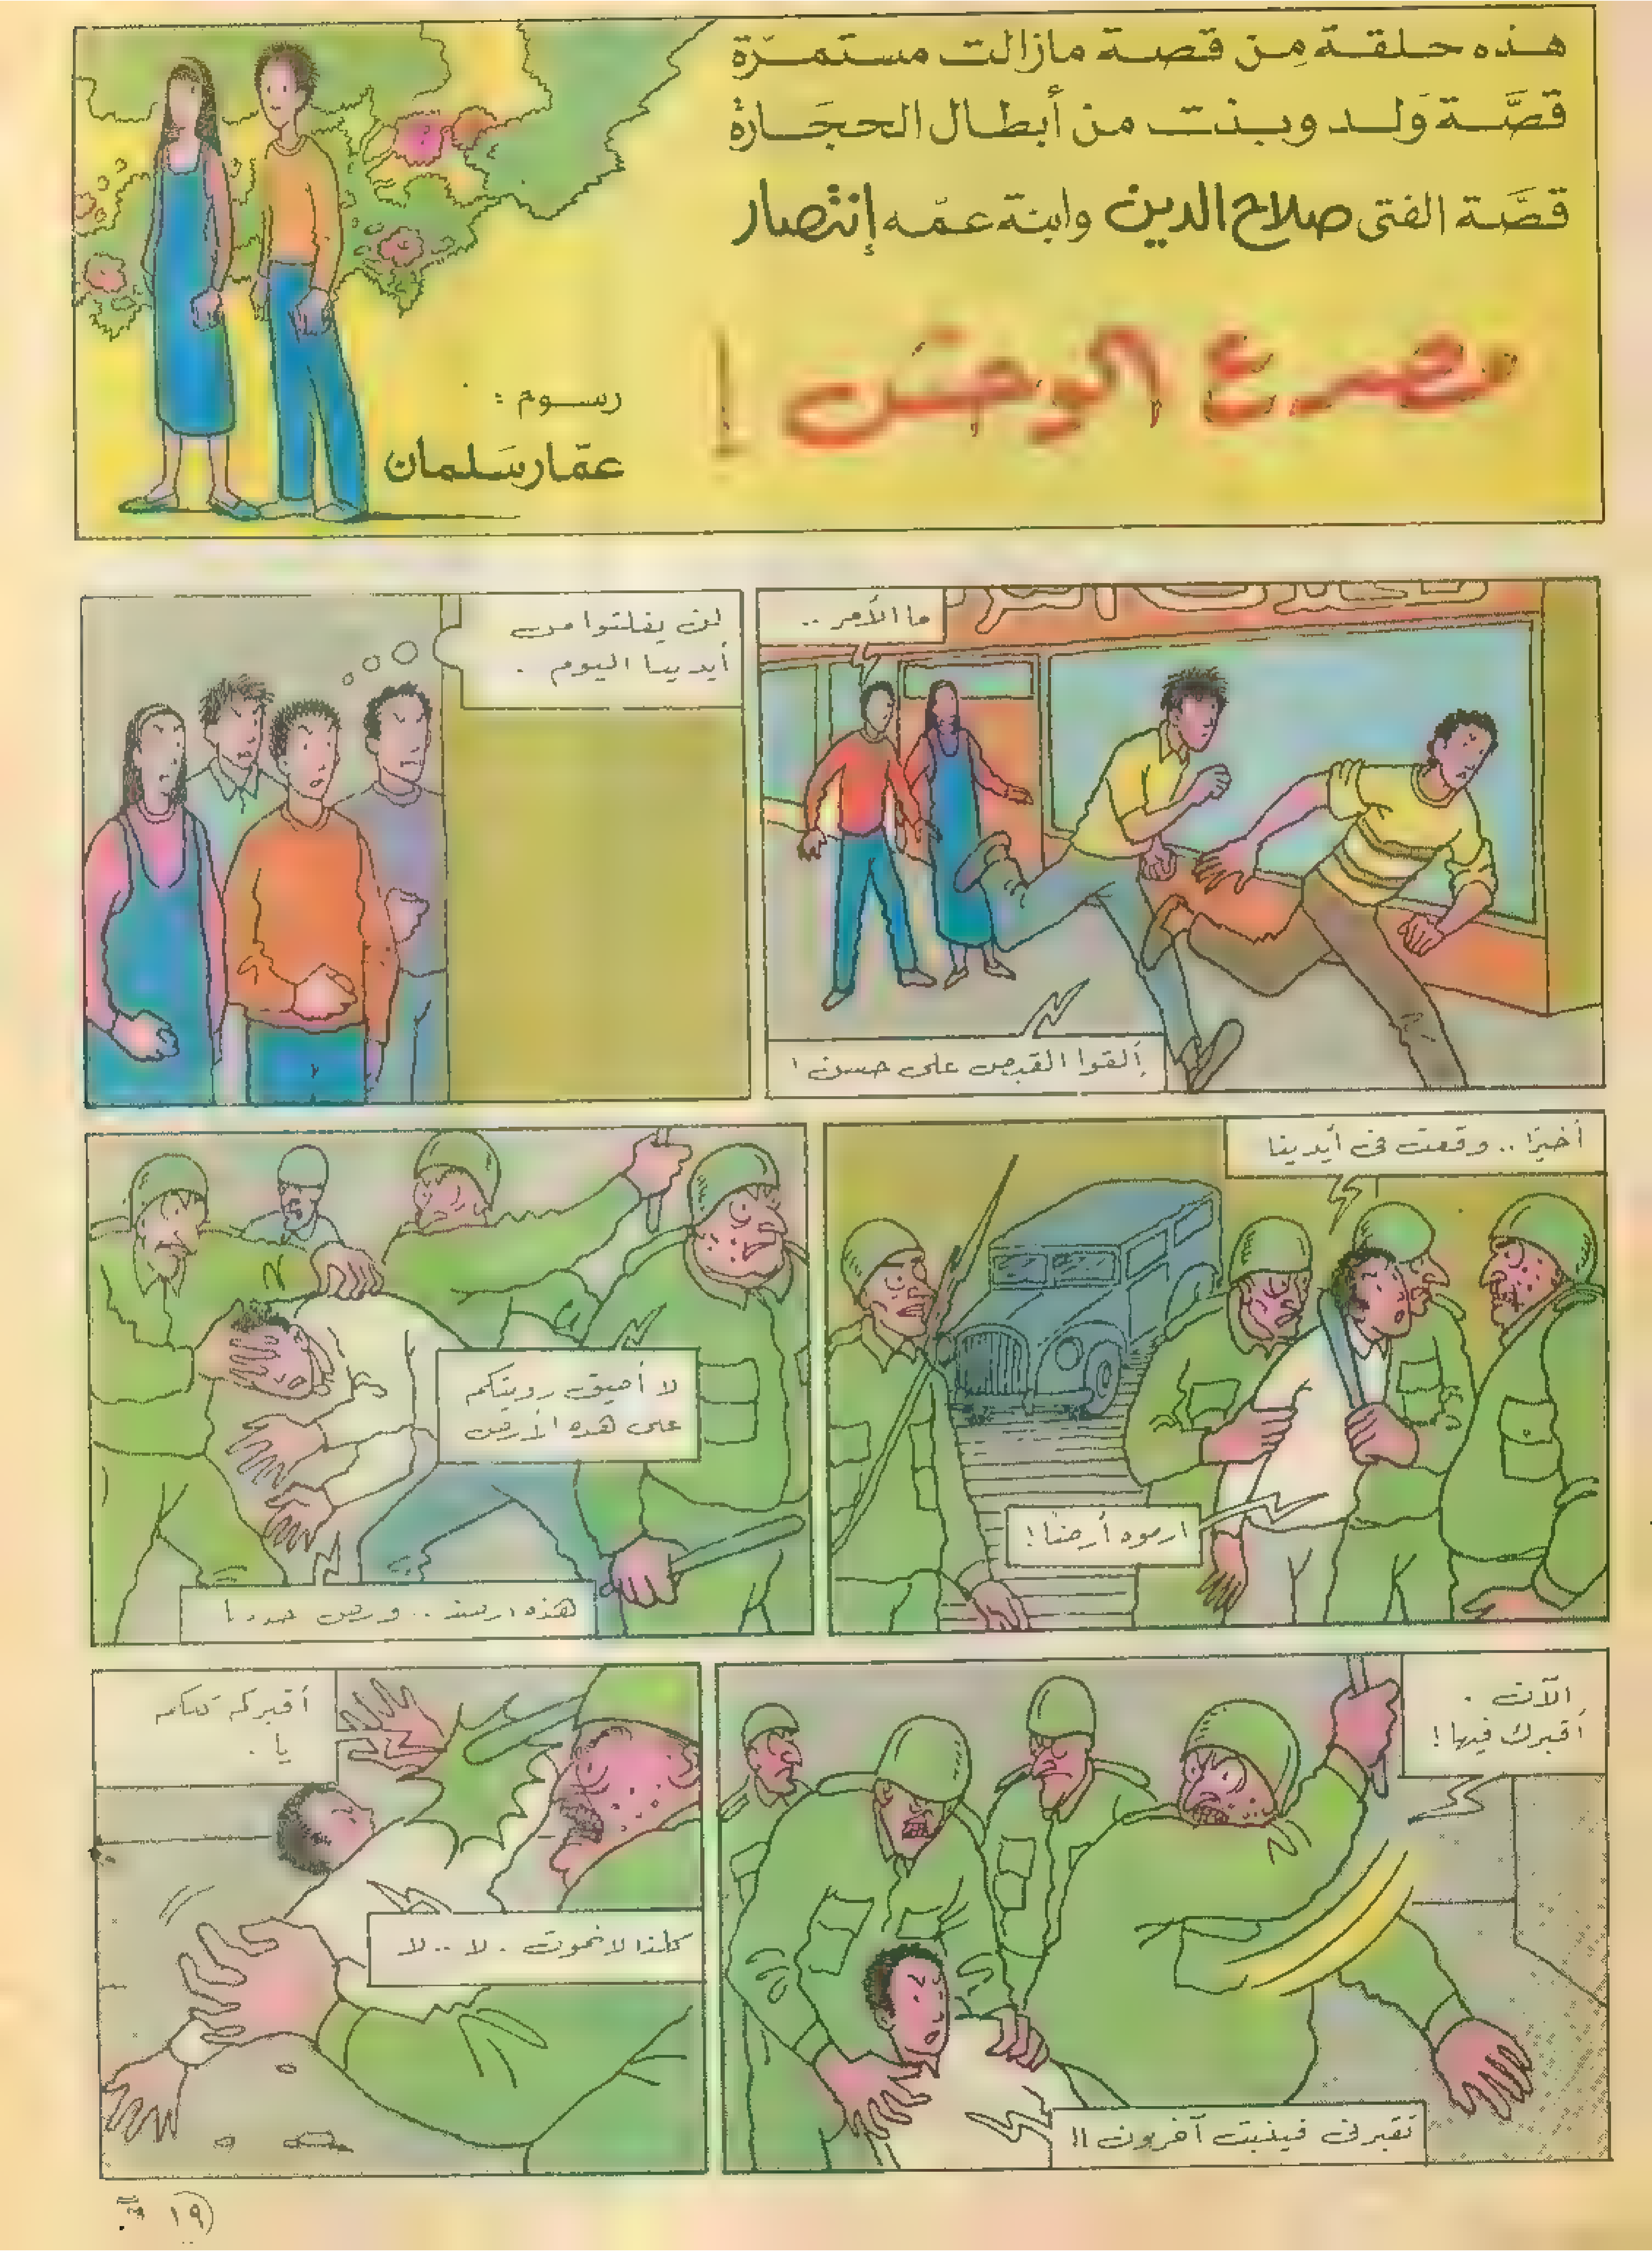 هذه حلقة مِن قصة مازالت مستمرّة
قصَّة وَلد وبنت من أبطال الحجَارة
قصَّة الفتى صلاح الدين وابنة عمّه إنتصار
مصرع الوحش !
رسوم :
عمّار سَلمان
ما الأمر ..
ألقوا القبض على حسن !
لن يفلتوا من
أيدينا اليوم .
أخيرًا .. وقعت في أيدينا
ارموه أرضًا !
لا أطيق رويتكم
على هذه الأرض
هذه .. وأرض
الآن .
أقبرك فيها !
تقبرني فينبت آخرون !!
أقبركم كلكم
يا .
كلنا لا نموت . لا .. لا
١٩